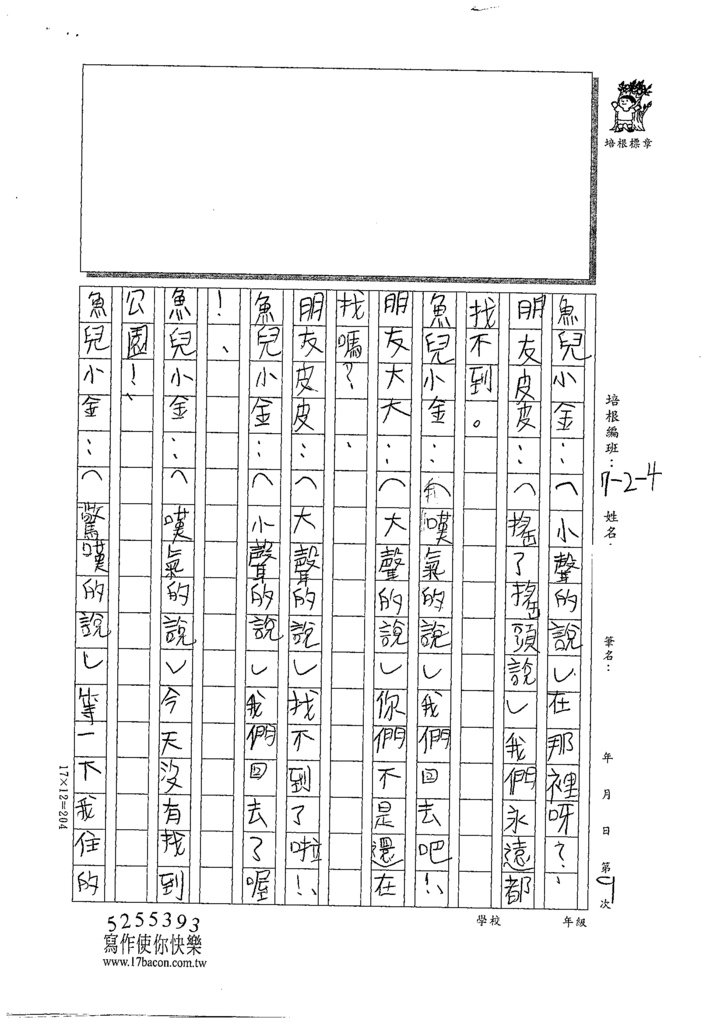 培根標章
培根編班：7-2-4 姓名： 筆名： 年 月 日 第9次
學校 年級
魚兒小金：（小聲的說）在那裡呀？、
朋友皮皮：（搖了搖頭說）我們永遠都
找不到。
魚兒小金：（嘆氣的說）我們回去吧！、
朋友大大：（大聲的說）你們不是還在
找嗎？、
朋友皮皮：（大聲的說）找不到了啦！、
魚兒小金：（小聲的說）我們回去了喔
！、
魚兒小金：（嘆氣的說）今天沒有找到
公園！、
魚兒小金：（驚嘆的說）等一下我住的
17×12=204
5255393
寫作使你快樂
www.17bacon.com.tw